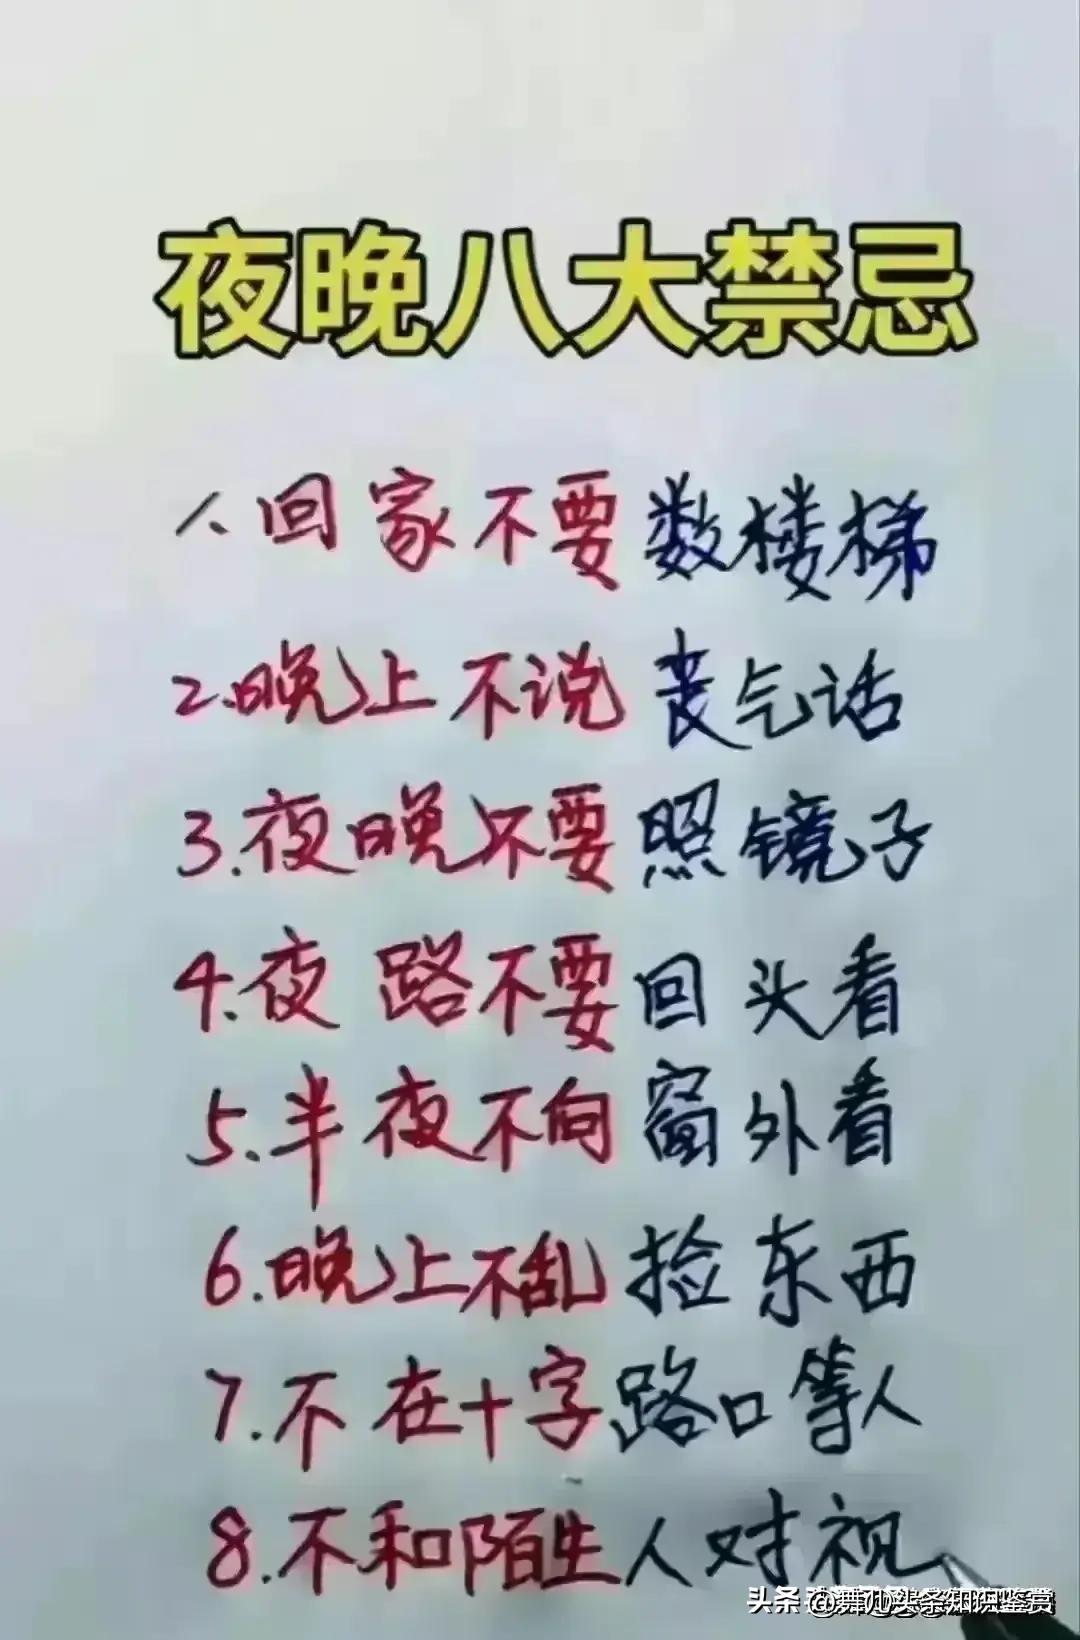 夜晚八大禁忌
1.回家不要数楼梯
2.晚上不说丧气话
3.夜晚不要照镜子
4.夜路不要回头看
5.半夜不向窗外看
6.晚上不乱捡东西
7.不在十字路口等人
8.不和陌生人对视
头条